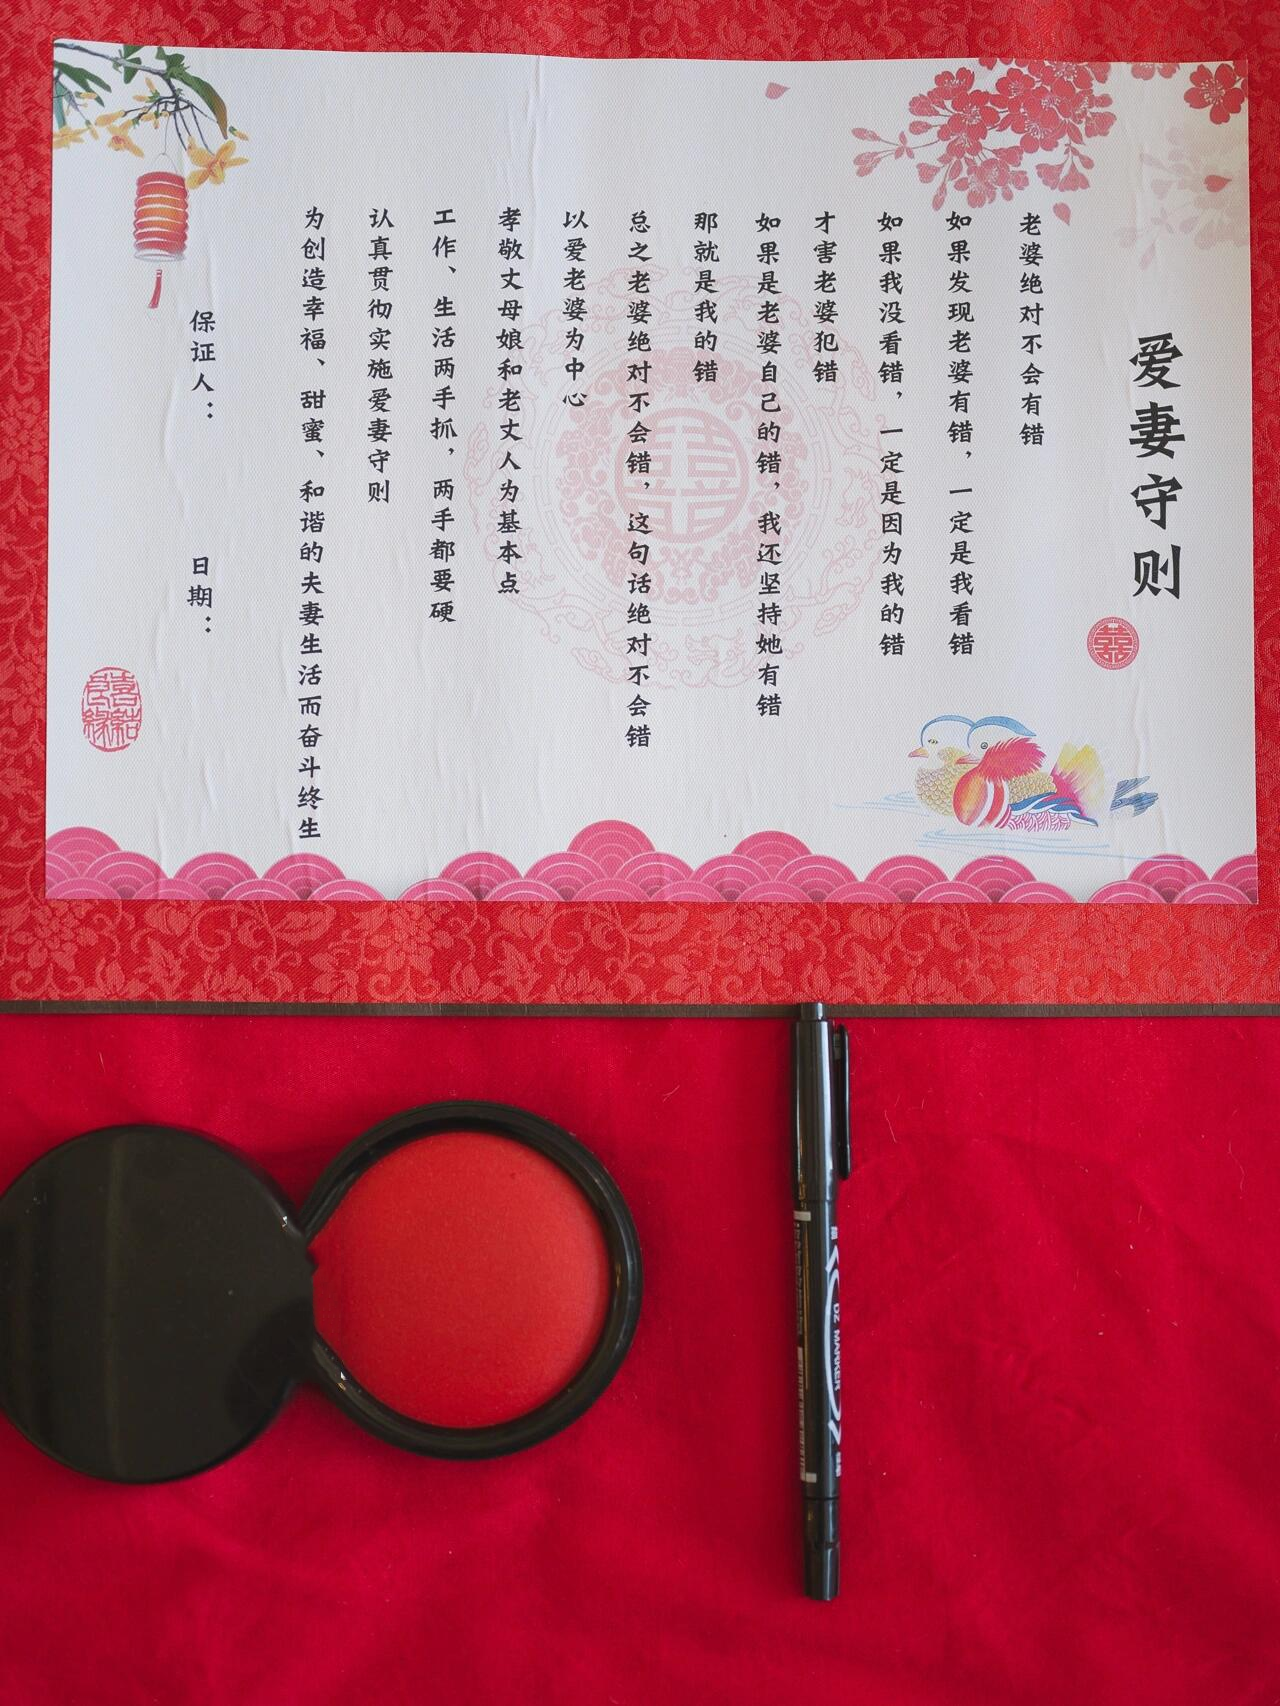 爱妻守则
老婆绝对不会有错
如果发现老婆有错，一定是我看错
如果我没看错，一定是因为我的错
才害老婆犯错
如果是老婆自己的错，我还坚持她有错
那就是我的错
总之老婆绝对不会错，这句话绝对不会错
以爱老婆为中心
孝敬丈母娘和老丈人为基本点
工作、生活两手抓，两手都要硬
认真贯彻实施爱妻守则
为创造幸福、甜蜜、和谐的夫妻生活而奋斗终生
保证人： 日期：
囍
囍
喜結良緣
DZ MARKER